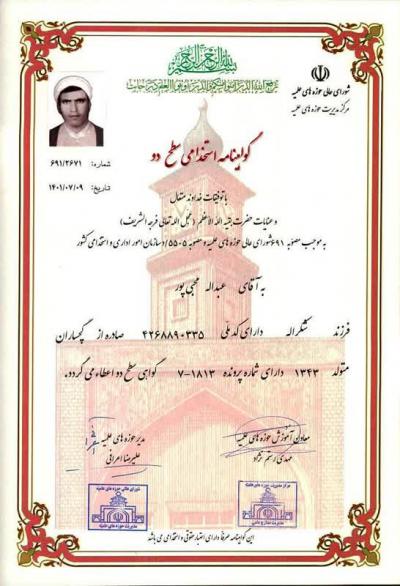 بسم الله الرحمن الرحیم
یرفع الله الذین آمنوا منکم والذین اوتوا العلم درجات
شورای عالی حوزه های علمیه
مرکز مدیریت حوزه های علمیه
گواهینامه استخدامی سطح دو
شماره: ۶۹۱/۲۶۷۱
تاریخ: ۱۴۰۱/۰۷/۰۹
با توفیقات خداوند متعال
و عنایات حضرت بقیه الله الاعظم (عجل الله تعالی فرجه الشریف)
به موجب مصوبه ۶۹۱ شورای عالی حوزه های علمیه و مصوبه ۵۵۰۵/د سازمان امور اداری و استخدامی کشور
به آقای عبداله محبی پور
فرزند شکراله دارای کد ملی ۴۲۶۸۸۹۰۳۳۵ صادره از گچساران
متولد ۱۳۴۳ دارای شماره پرونده ۱۸۱۳-۷ گواهی سطح دو اعطاء می گردد.
معاون آموزش حوزه های علمیه
مهدی رستم نژاد
مدیر حوزه های علمیه
علیرضا اعرافی
مرکز مدیریت حوزه های علمیه
شورای عالی حوزه های علمیه
این گواهینامه صرفا دارای اعتبار حقوقی و استخدامی می باشد